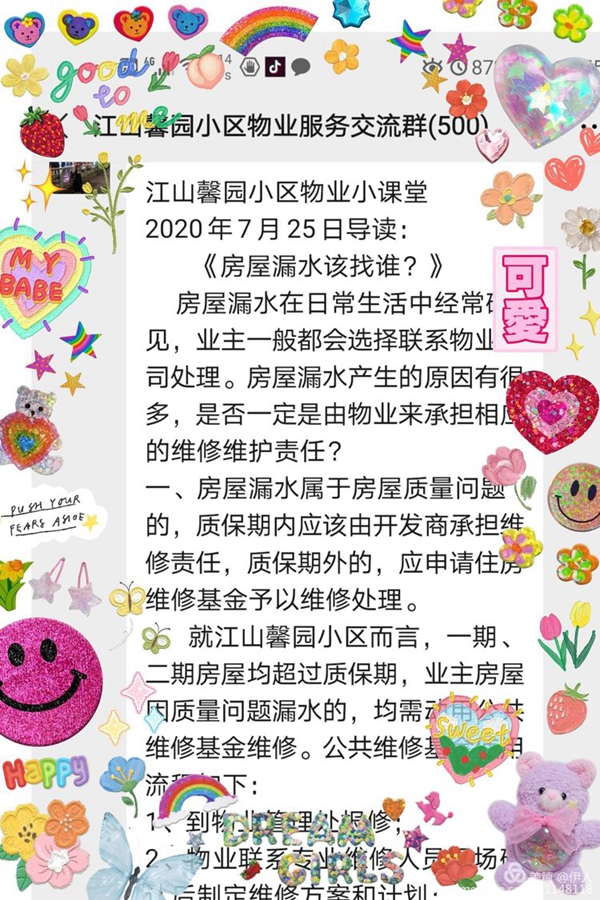 good
to
me
4G
4
s
87
江山馨园小区物业服务交流群(500)
江山馨园小区物业小课堂
2020年7月25日导读：
《房屋漏水该找谁？》
房屋漏水在日常生活中经常
见，业主一般都会选择联系物业
司处理。房屋漏水产生的原因有很
多，是否一定是由物业来承担相应
的维修维护责任？
一、房屋漏水属于房屋质量问题
的，质保期内应该由开发商承担维
修责任，质保期外的，应申请住房
维修基金予以维修处理。
就江山馨园小区而言，一期、
二期房屋均超过质保期，业主房屋
因质量问题漏水的，均需动用公共
维修基金维修。公共维修基
流程如下：
1、到物业管理处报修；
2、物业联系专业维修人员现场
后制定维修方案和计划；
MY
BABE
可愛
PUSH YOUR
FEARS ASIDE
Sweet
HAPPY
DREAM
GIRLS
美篇 @伊人
1148118